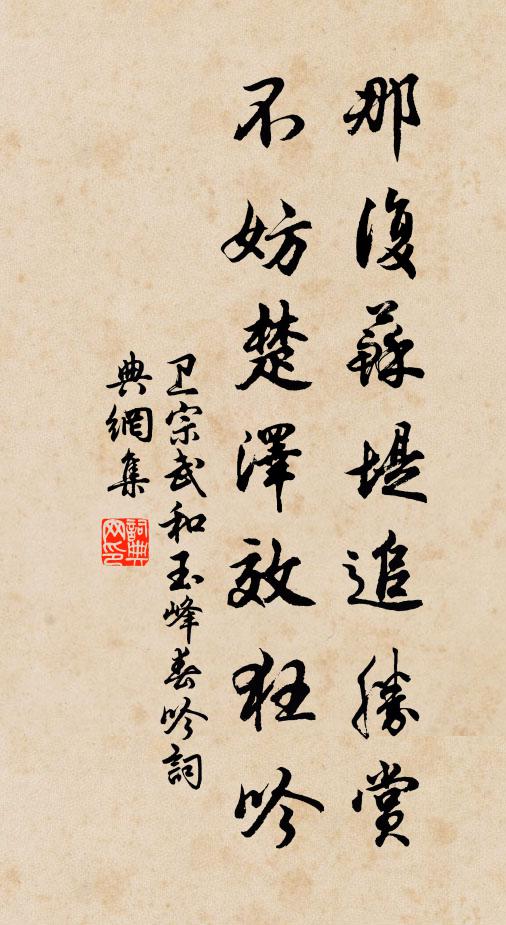 那復蘇堤追勝賞
不妨楚澤效狂吟
卫宗武和玉峰春吟詞
典網集
詞典
网印